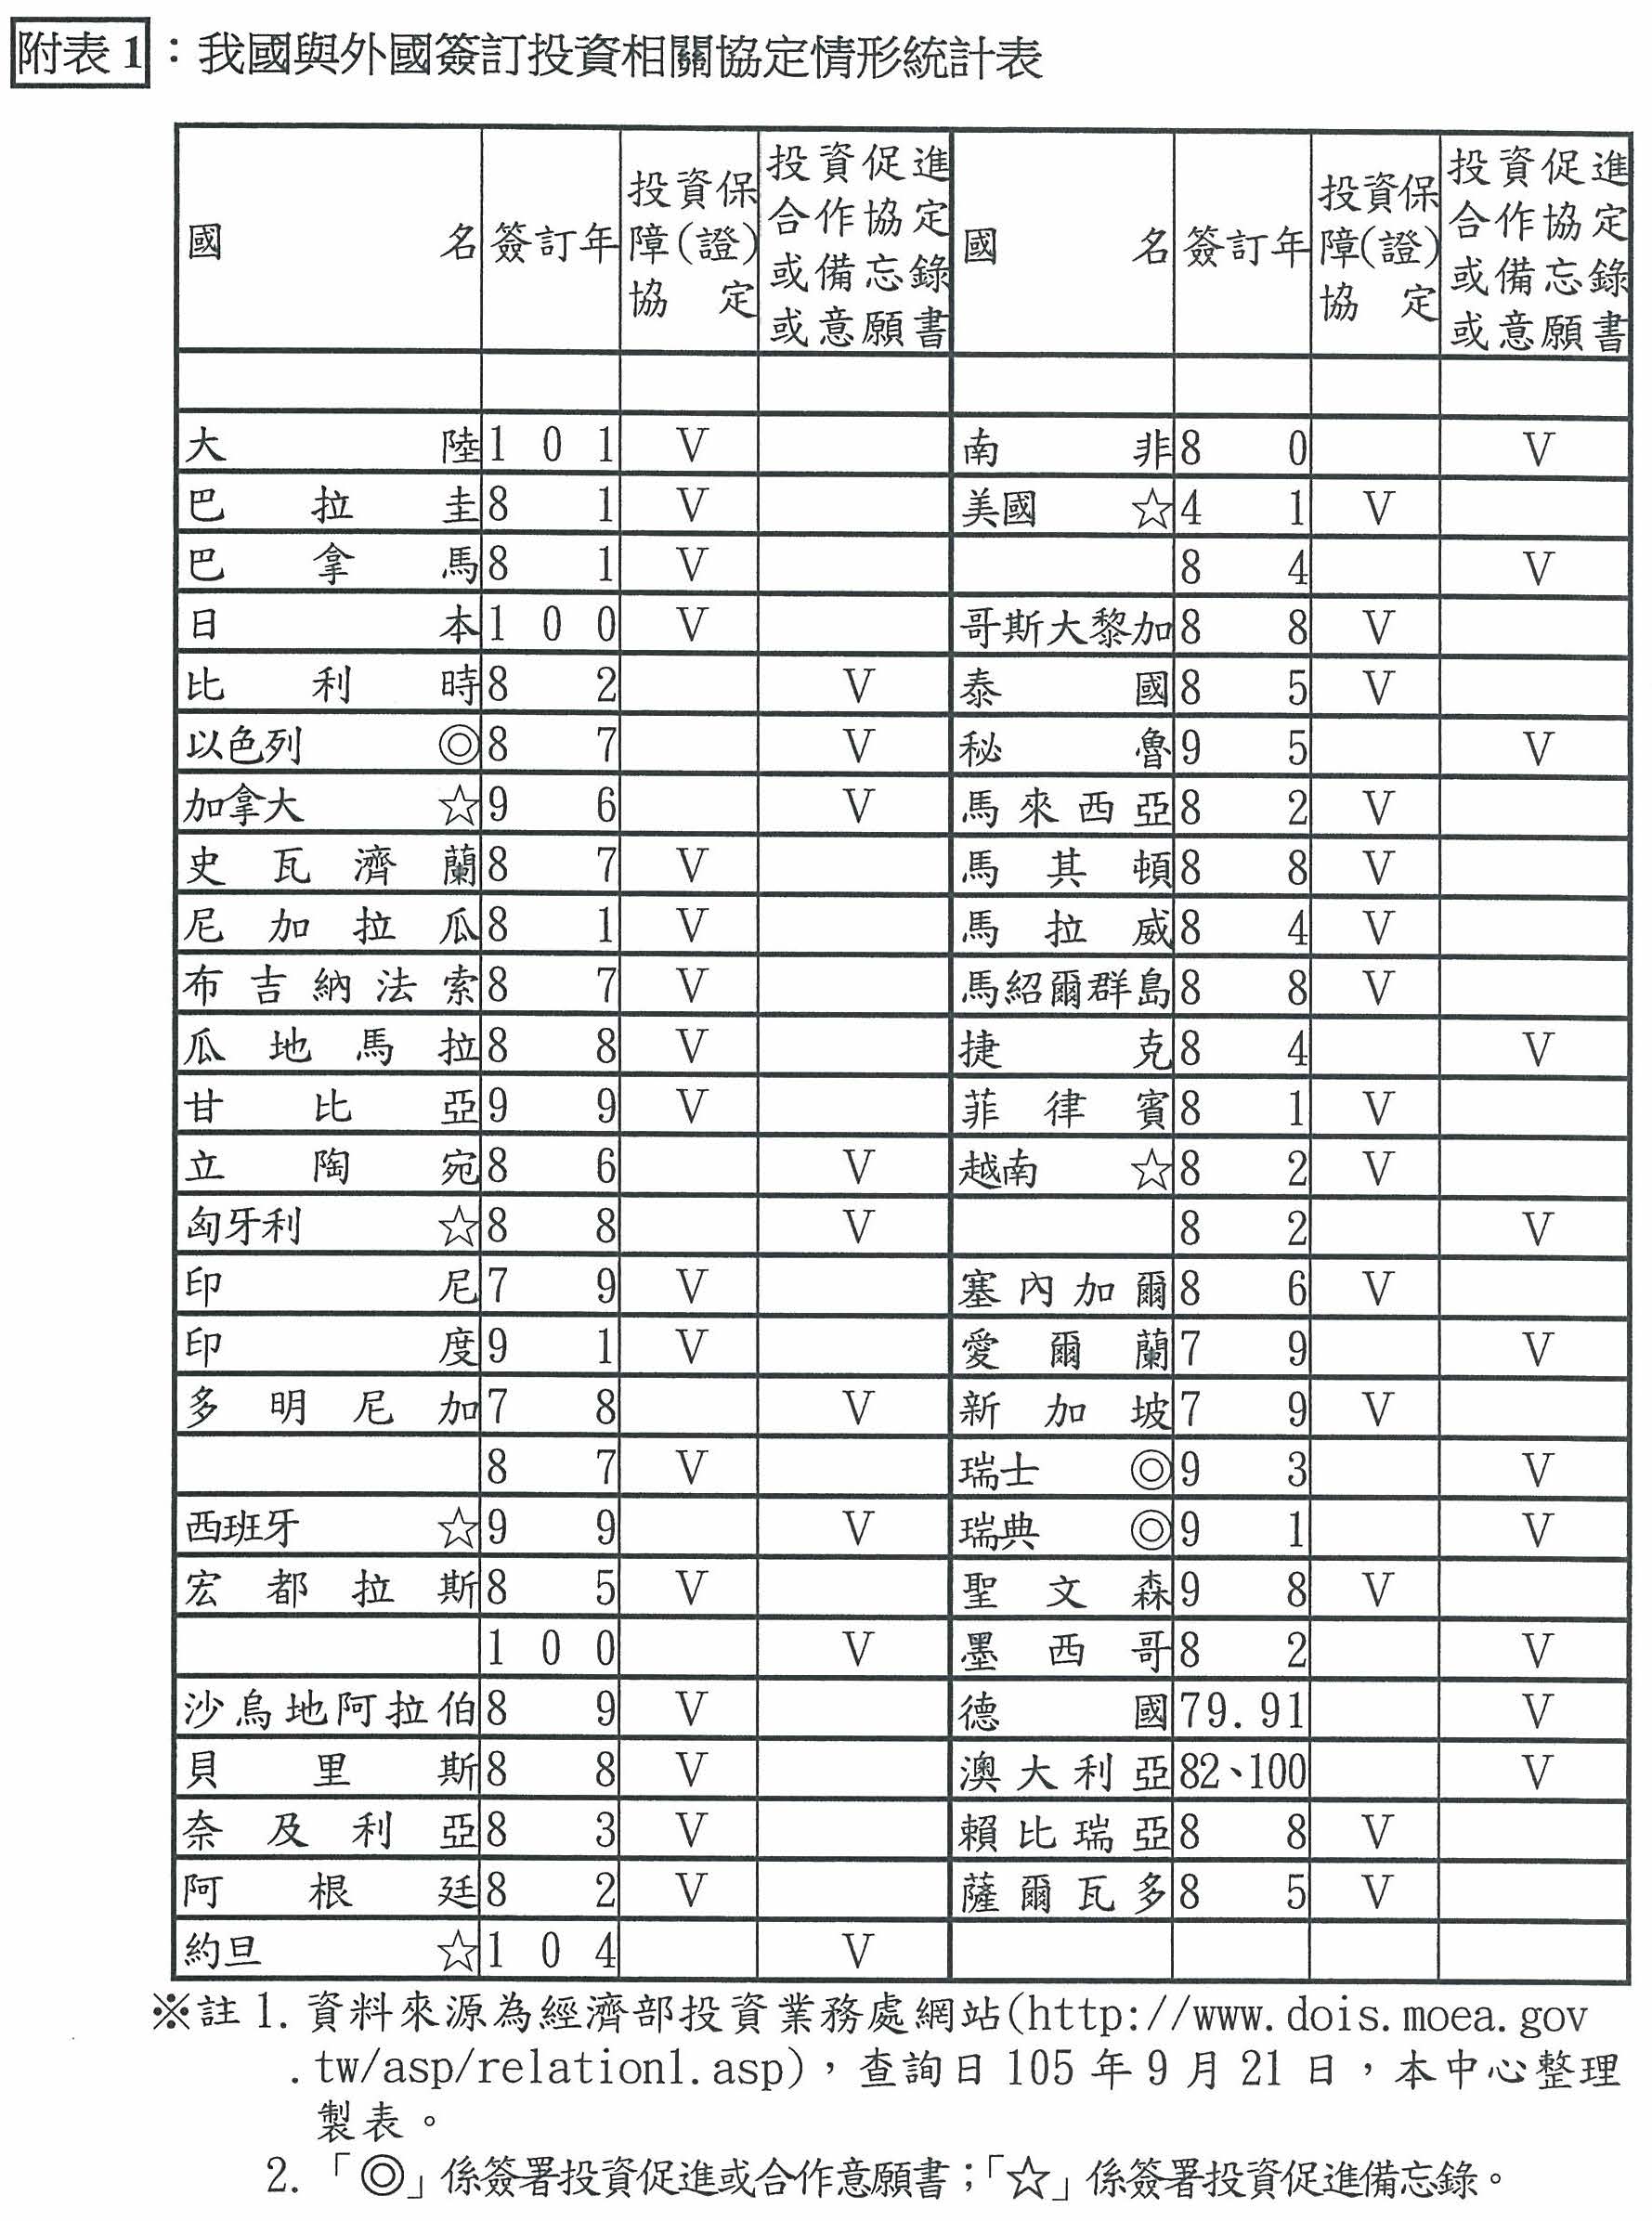 附表1：我國與外國簽訂投資相關協定情形統計表
國名 簽訂年 投資保障(證)協定 投資促進合作協定或備忘錄或意願書 國名 簽訂年 投資保障(證)協定 投資促進合作協定或備忘錄或意願書
大陸 101 V 南非 80 V
巴拉圭 81 V 美國 ☆ 41 V
巴拿馬 81 V 84 V
日本 100 V 哥斯大黎加 88 V
比利時 82 V 泰國 85 V
以色列 ◎ 87 V 秘魯 95 V
加拿大 ☆ 96 V 馬來西亞 82 V
史瓦濟蘭 87 V 馬其頓 88 V
尼加拉瓜 81 V 馬拉威 84 V
布吉納法索 87 V 馬紹爾群島 88 V
瓜地馬拉 88 V 捷克 84 V
甘比亞 99 V 菲律賓 81 V
立陶宛 86 V 越南 ☆ 82 V
匈牙利 ☆ 88 V 82 V
印尼 79 V 塞內加爾 86 V
印度 91 V 愛爾蘭 79 V
多明尼加 78 V 新加坡 79 V
87 V 瑞士 ◎ 93 V
西班牙 ☆ 99 V 瑞典 ◎ 91 V
宏都拉斯 85 V 聖文森 98 V
100 V 墨西哥 82 V
沙烏地阿拉伯 89 V 德國 79.91 V
貝里斯 88 V 澳大利亞 82、100 V
奈及利亞 83 V 賴比瑞亞 88 V
阿根廷 82 V 薩爾瓦多 85 V
約旦 ☆ 104 V
※註1. 資料來源為經濟部投資業務處網站(http://www.dois.moea.gov
.tw/asp/relation1.asp)，查詢日105年9月21日，本中心整理
製表。
2. 「◎」係簽署投資促進或合作意願書；「☆」係簽署投資促進備忘錄。